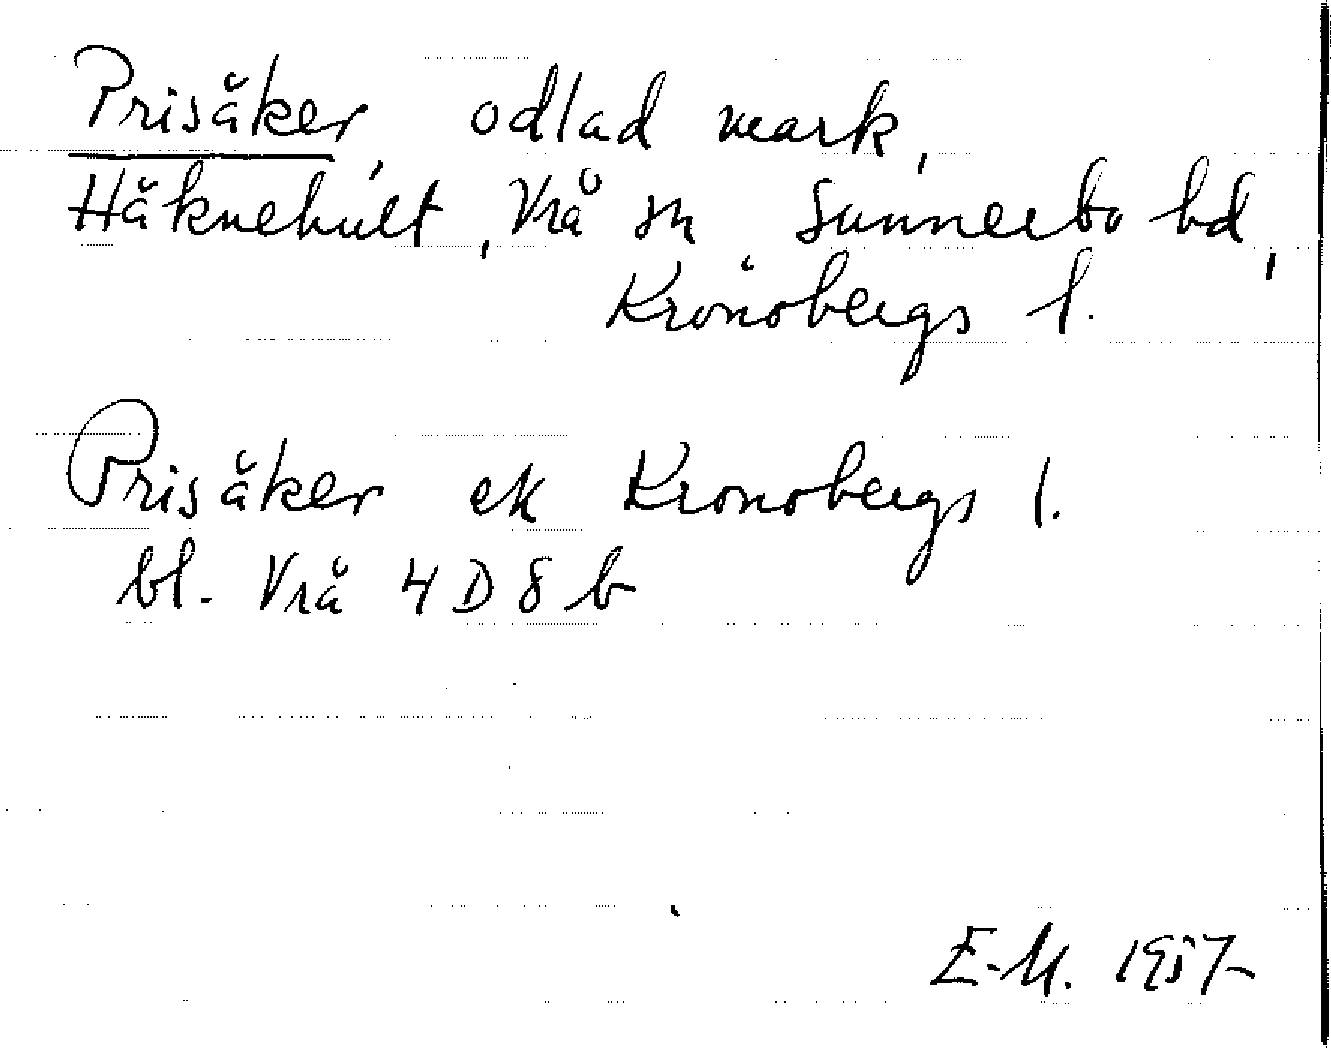 Prisåker, odlad mark,
Håknehult, Vrå sn, Sunnerbo hd,
Kronobergs l.
Prisåker ek Kronobergs l.
bl. Vrå 4 D 8 b
E.M. 1957